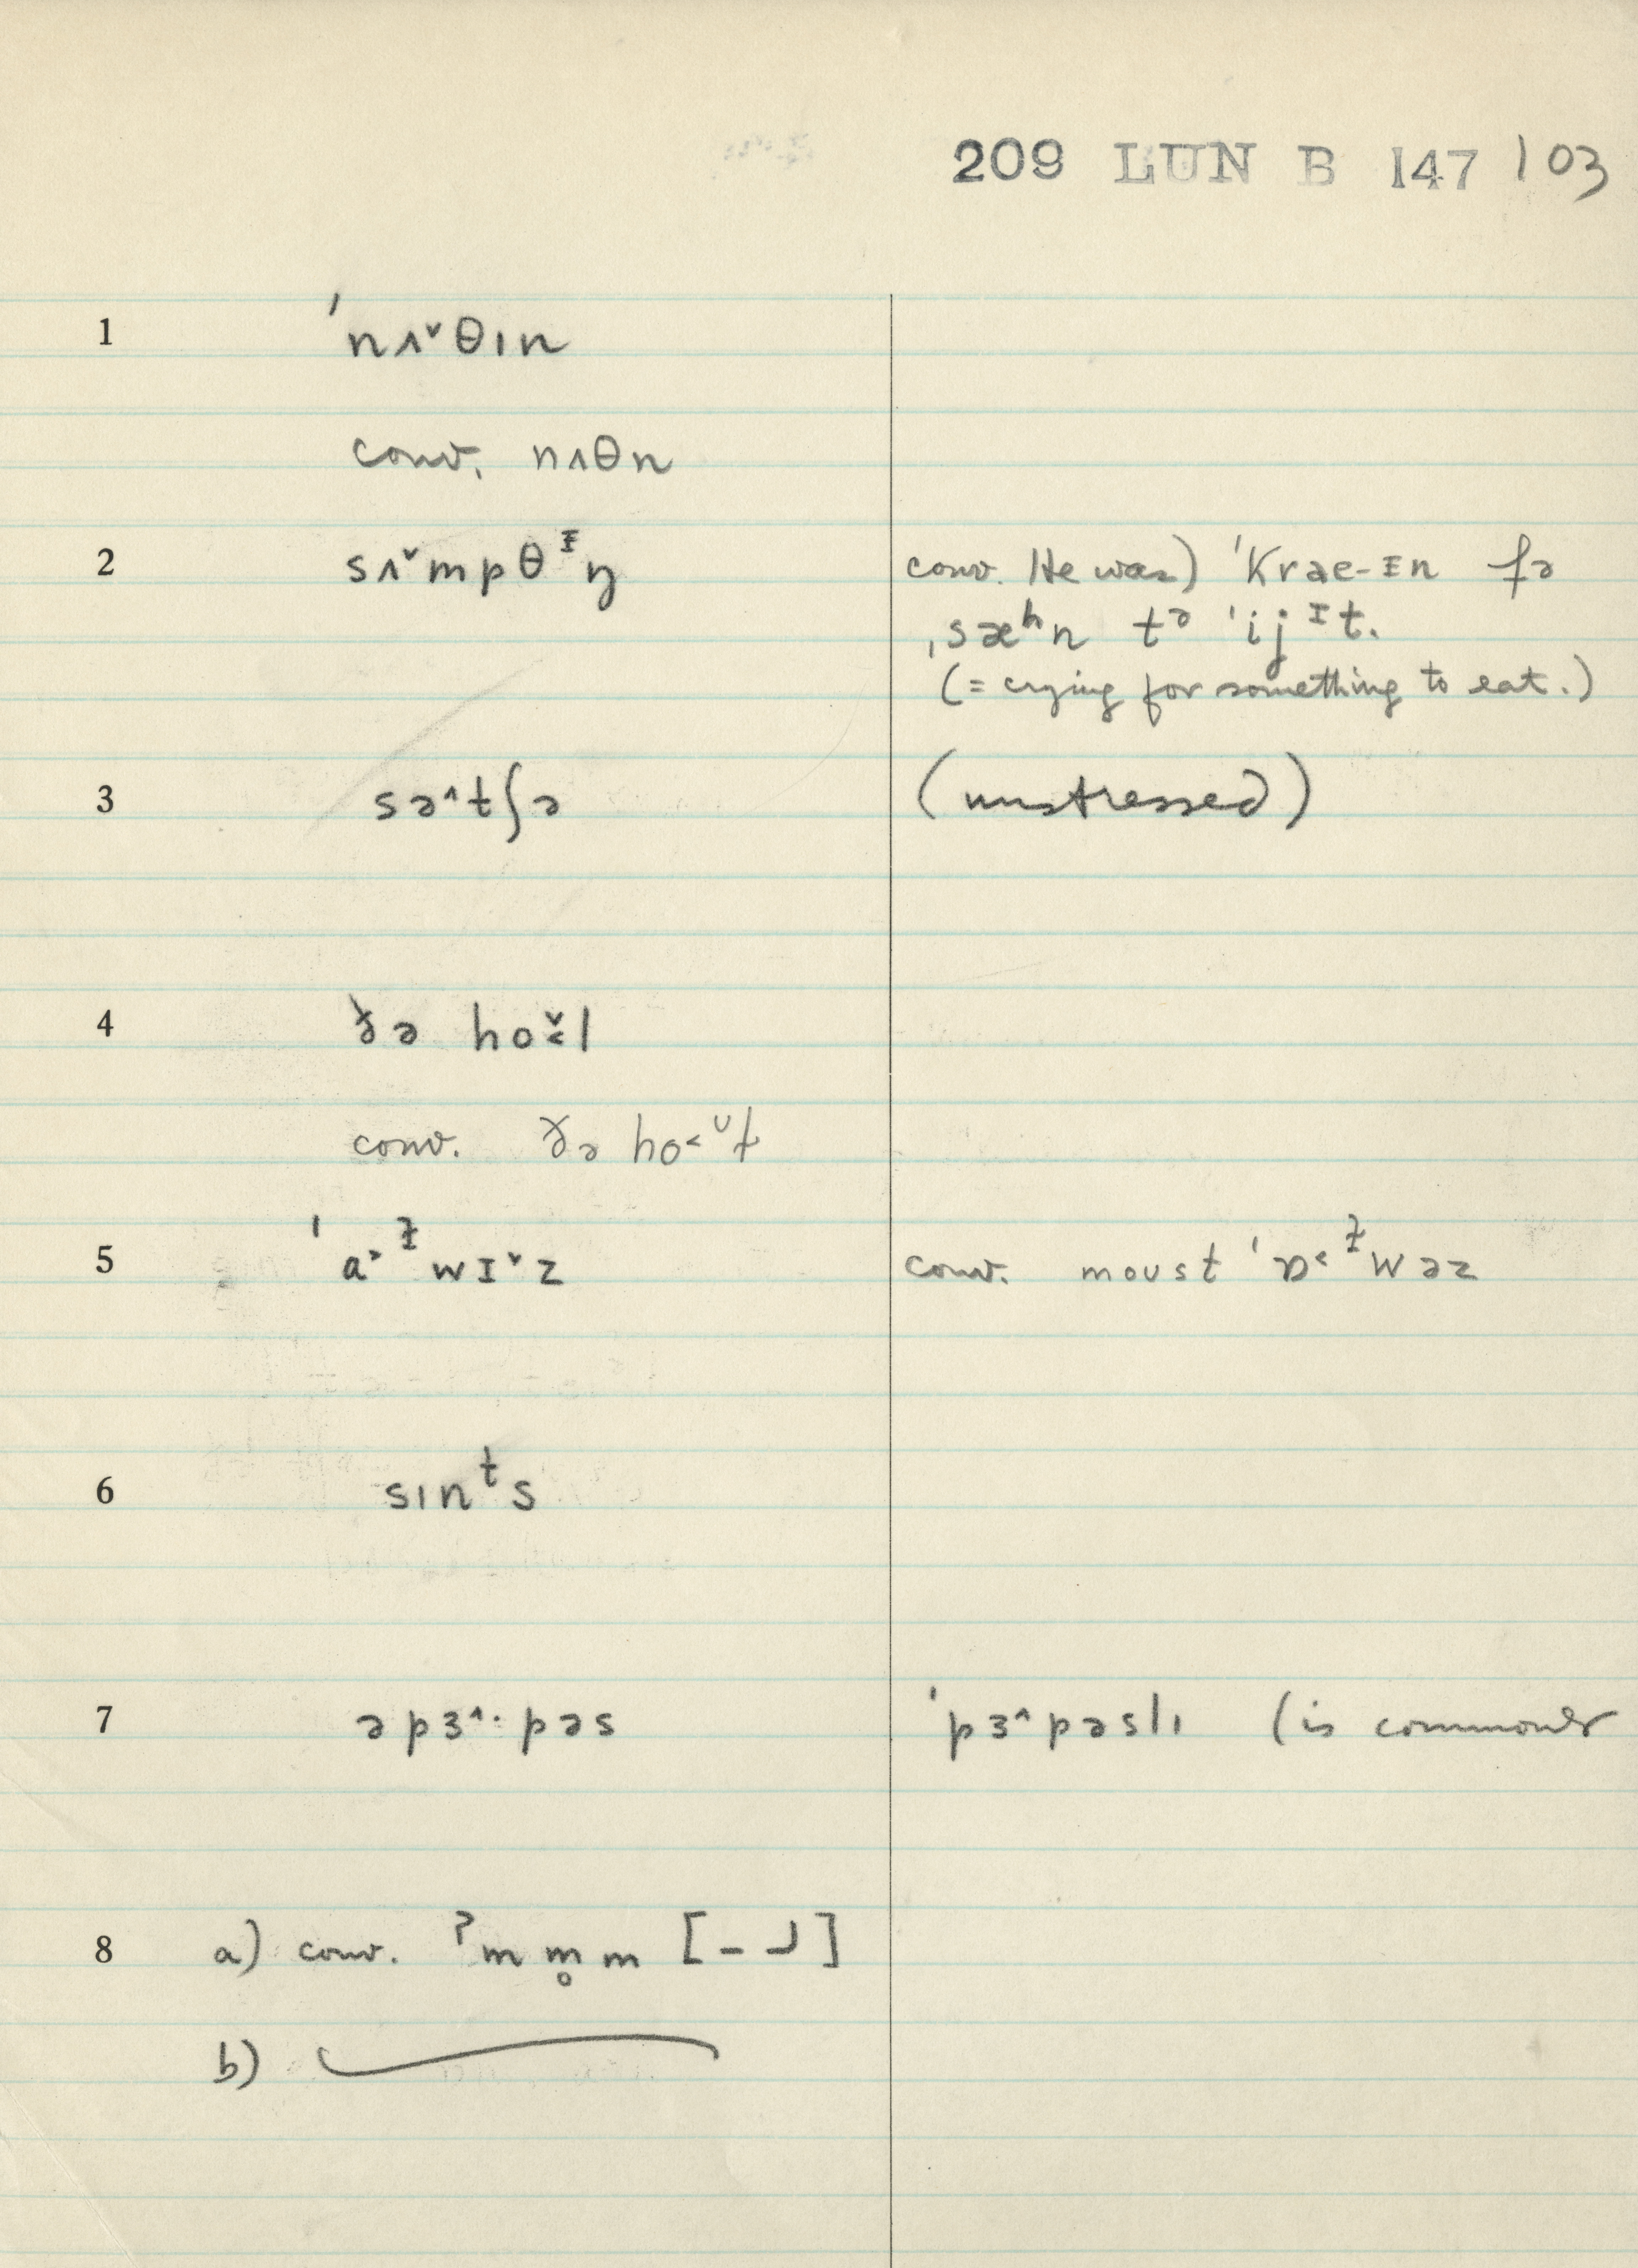 209 LUN B 147 103
1 ˈnʌ˅θın
conv. nʌθn
2 sʌ˅mpθᵻŋ conv. He was) ˈkrae-ᵻn fə
ˌsæʰn tə ˈijᶦt.
(= crying for something to eat.)
3 sə^tʃə (unstressed)
4 ðə ho˅˂l
conv. ðə ho˂ᶷɫ
5 ˈa˃ɫwɪ˅z conv. moust ˈɒ˂ɫwəz
6 sınᵗs
7 əpɜ^·pəs ˈpɜ^pəslı (is commoner
8 a) conv. ˀmm̥m [– ┘]
b)